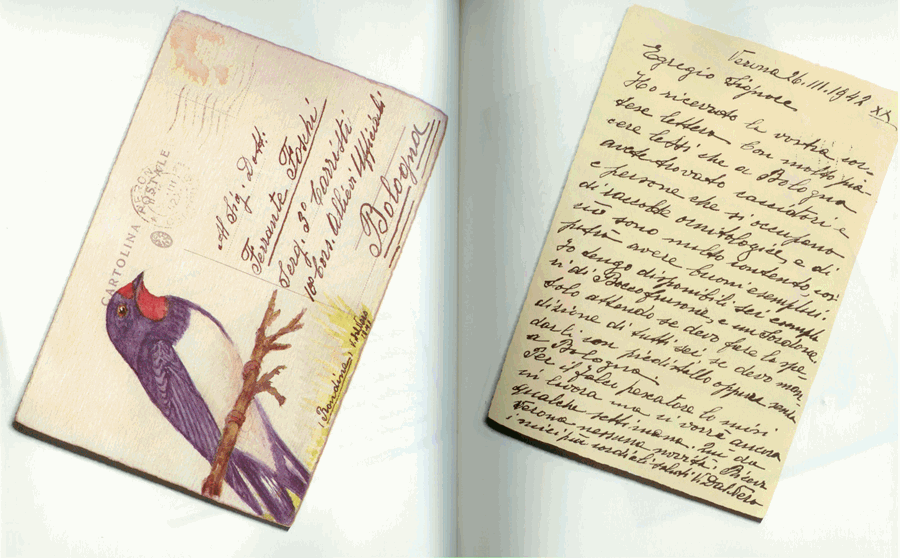 CARTOLINA POSTALE
Al Sig. Dott.
Ferrante Foschi
Serg. 3º Carristi
10º Cors. Allievi Ufficiali
Bologna
(Rondine)
Verona 26. III. 1942
XX
Egregio Signore
Ho ricevuto la vostra cor-
tese lettera. Con molto pia-
cere lessi che a Bologna
avete trovato cacciatori e
persone che si occupano
di raccolte ornitologiche, e di
ciò sono molto contento così
potrò avere buoni esemplari.
Io tengo disponibili sei esempla
ri di Beccofrusone e un Sordone
solo attendo se devo fare la spe-
dizione di tutti sei, se devo man-
darli con piedistallo oppure senza
a Bologna.
Per il falco pescatore lo misi
in lavoro ma ci vorrà ancora
qualche settimana. Qui da
Verona nessuna novità. Ricev
miei più cordiali saluti Dal Nero